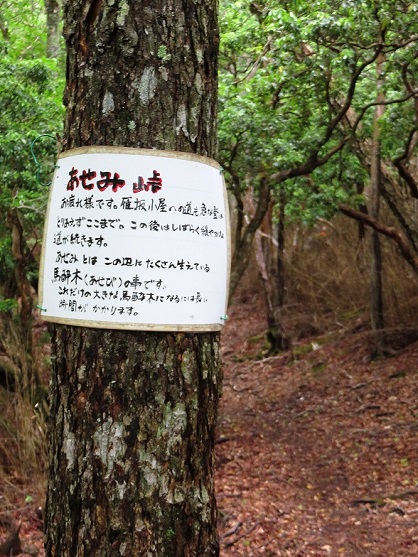 あせみ 峠
お疲れ様です。雁坂小屋への道も急な登りは
とりあえずここまで。この後はしばらく緩やかな
道が続きます。
あせみ とは この辺にたくさん生えている
馬酔木(あせび)の事です。
これだけの大きな馬酔木になるには長い
時間がかかります。